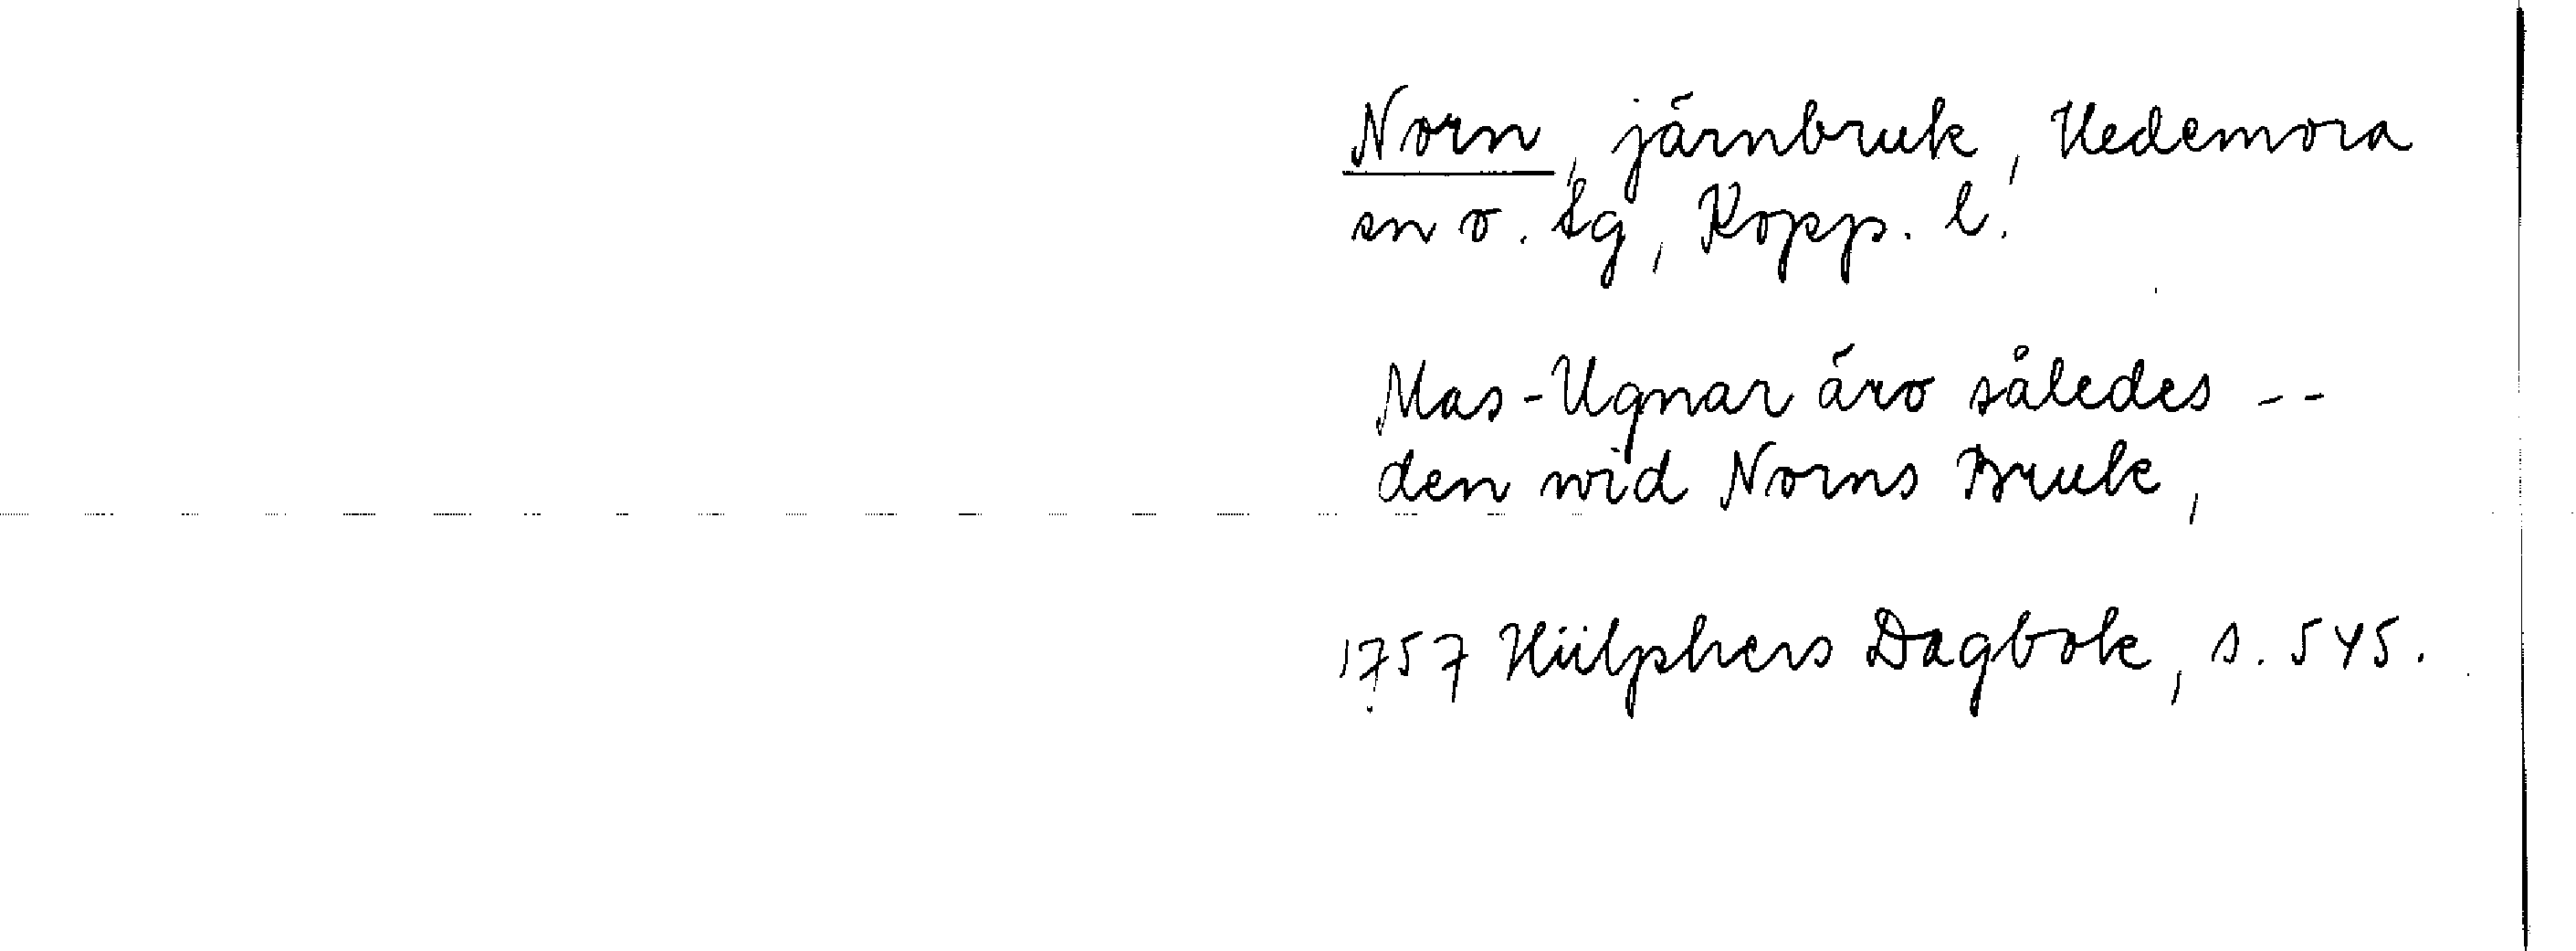 Norn, järnbruk, Hedemora
sn o. tg, Kopp. l.
Mas-Ugnar äro således --
den wid Norns Bruk,
1757 Hülphers Dagbok, s. 545.